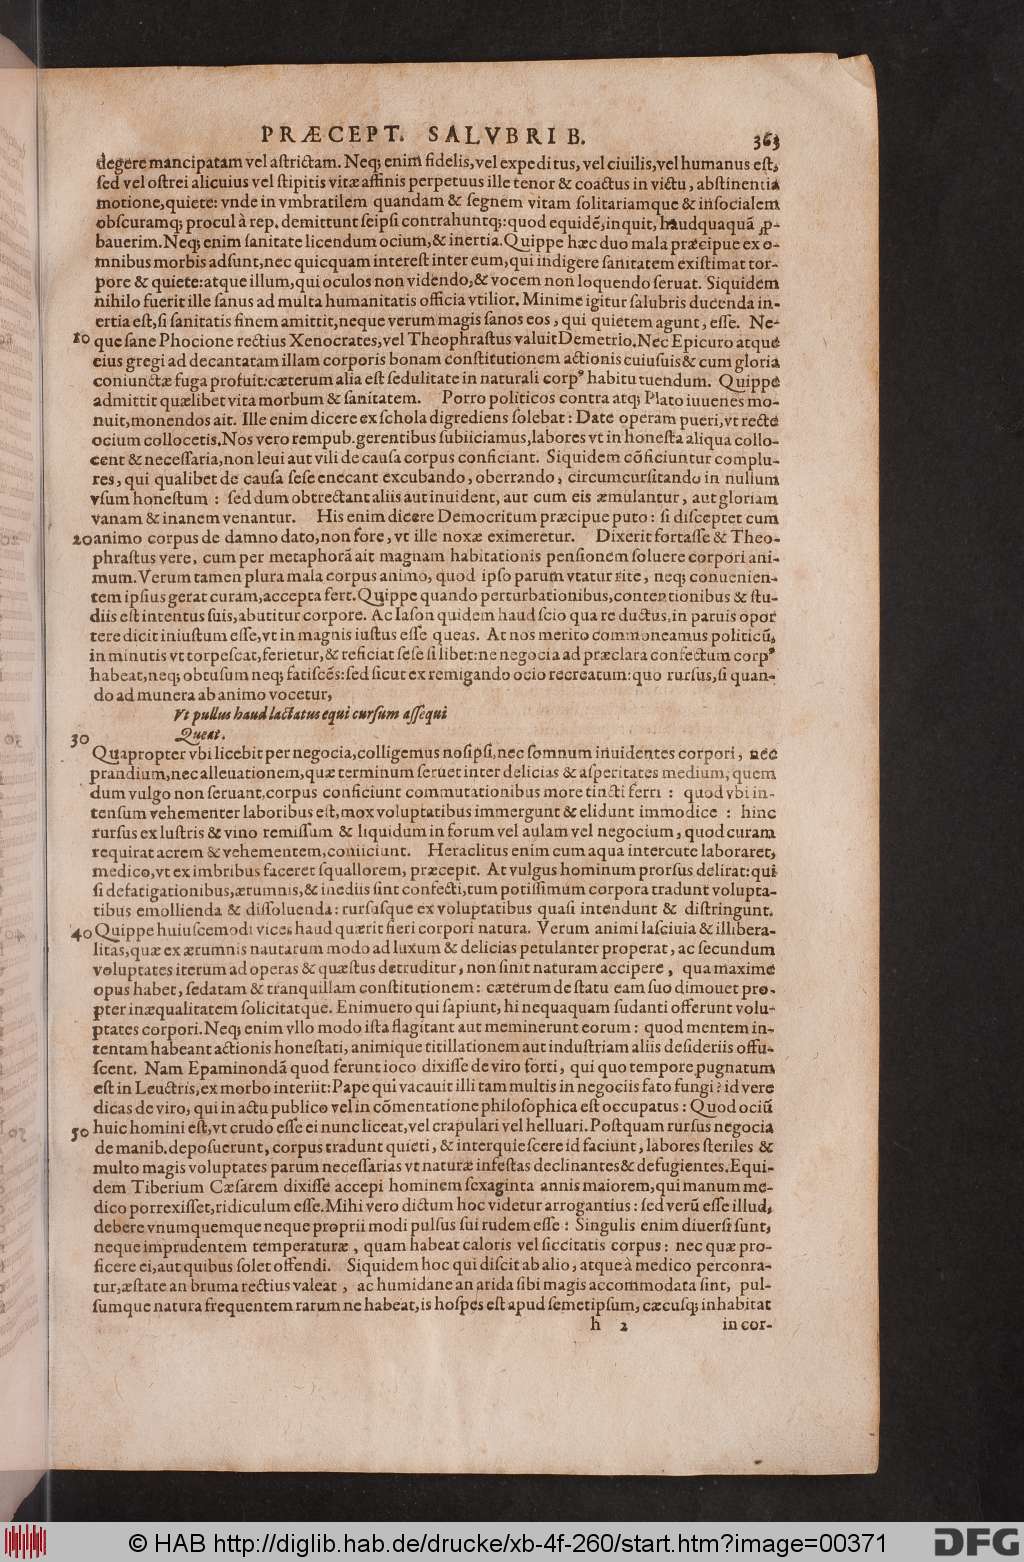 PRÆCEPT. SALVBRIB. 363
degere mancipatam vel astrictam. Neq; enim fidelis, vel expeditus, vel ciuilis, vel humanus est,
sed vel ostrei alicuius vel stipitis vitæ affinis perpetuus ille tenor & coactus in victu, abstinentia
motione, quiete: vnde in vmbratilem quandam & segnem vitam solitariamque & insocialem
obscuramq; procul à rep. demittunt seipsi contrahuntq;: quod equidē, inquit, haudquaquā ꝓ-
bauerim. Neq; enim sanitate licendum ocium, & inertia. Quippe hæc duo mala præcipue ex o-
mnibus morbis adsunt, nec quicquam interest inter eum, qui indigere sanitatem existimat tor-
pore & quiete: atque illum, qui oculos non videndo, & vocem non loquendo seruat. Siquidem
nihilo fuerit ille sanus ad multa humanitatis officia vtilior. Minime igitur salubris ducenda in-
ertia est, si sanitatis finem amittit, neque verum magis sanos eos, qui quietem agunt, esse. Ne-
10 que sane Phocione rectius Xenocrates, vel Theophrastus valuit Demetrio. Nec Epicuro atque
eius gregi ad decantatam illam corporis bonam constitutionem actionis cuiusuis & cum gloria
coniunctæ fuga profuit: cæterum alia est sedulitate in naturali corpꝰ habitu tuendum. Quippe
admittit quælibet vita morbum & sanitatem. Porro politicos contra atq; Plato iuuenes mo-
nuit, monendos ait. Ille enim dicere ex schola digrediens solebat: Date operam pueri, vt recte
ocium collocetis. Nos vero rempub. gerentibus subiiciamus, labores vt in honesta aliqua collo-
cent & necessaria, non leui aut vili de causa corpus conficiant. Siquidem cōficiuntur complu-
res, qui qualibet de causa sese enecant excubando, oberrando, circumcursitando in nullum
vsum honestum: sed dum obtrectant aliis aut inuident, aut cum eis æmulantur, aut gloriam
vanam & inanem venantur. His enim dicere Democritum præcipue puto: si disceptet cum
20 animo corpus de damno dato, non fore, vt ille noxæ eximeretur. Dixerit fortasse & Theo-
phrastus vere, cum per metaphorā ait magnam habitationis pensionem soluere corpori ani-
mum. Verum tamen plura mala corpus animo, quod ipso parum vtatur rite, neq; conuenien-
tem ipsius gerat curam, accepta fert. Quippe quando perturbationibus, contentionibus & stu-
diis est intentus suis, abutitur corpore. Ac Iason quidem haud scio qua re ductus, in paruis opor
tere dicit iniustum esse, vt in magnis iustus esse queas. At nos merito commoneamus politicū,
in minutis vt torpescat, ferietur, & reficiat sese si libet: ne negocia ad præclara confectum corpꝰ
habeat, neq; obtusum neq; fatiscēs: sed sicut ex remigando ocio recreatum: quo rursus, si quan-
do ad munera ab animo vocetur,
Vt pullus haud lactatus equi cursum assequi
30 Queat.
Quapropter vbi licebit per negocia, colligemus nosipsi, nec somnum inuidentes corpori, nec
prandium, nec alleuationem, quæ terminum seruet inter delicias & asperitates medium, quem
dum vulgo non seruant, corpus conficiunt commutationibus more tincti ferri: quod vbi in-
tensum vehementer laboribus est, mox voluptatibus immergunt & elidunt immodice: hinc
rursus ex lustris & vino remissum & liquidum in forum vel aulam vel negocium, quod curam
requirat acrem & vehementem, coniiciunt. Heraclitus enim cum aqua intercute laboraret,
medico, vt ex imbribus faceret squallorem, præcepit. At vulgus hominum prorsus delirat: qui
si defatigationibus, ærumnis, & inediis sint confecti, tum potissimum corpora tradunt volupta-
tibus emollienda & dissoluenda: rursusque ex voluptatibus quasi intendunt & distringunt.
40 Quippe huiuscemodi vices haud quærit fieri corpori natura. Verum animi lasciuia & illibera-
litas, quæ ex ærumnis nautarum modo ad luxum & delicias petulanter properat, ac secundum
voluptates iterum ad operas & quæstus detruditur, non sinit naturam accipere, qua maxime
opus habet, sedatam & tranquillam constitutionem: cæterum de statu eam suo dimouet pro-
pter inæqualitatem solicitatque. Enimuero qui sapiunt, hi nequaquam sudanti offerunt volu-
ptates corpori. Neq; enim vllo modo ista flagitant aut meminerunt eorum: quod mentem in-
tentam habeant actionis honestati, animique titillationem aut industriam aliis desideriis offu-
scent. Nam Epaminondā quod ferunt ioco dixisse de viro forti, qui quo tempore pugnatum
est in Leuctris, ex morbo interiit: Pape qui vacauit illi tam multis in negociis fato fungi? id vere
dicas de viro, qui in actu publico vel in cōmentatione philosophica est occupatus: Quod ociū
50 huic homini est, vt crudo esse ei nunc liceat, vel crapulari vel helluari. Postquam rursus negocia
de manib. deposuerunt, corpus tradunt quieti, & interquiescere id faciunt, labores steriles &
multo magis voluptates parum necessarias vt naturæ infestas declinantes & defugientes. Equi-
dem Tiberium Cæsarem dixisse accepi hominem sexaginta annis maiorem, qui manum me-
dico porrexisset, ridiculum esse. Mihi vero dictum hoc videtur arrogantius: sed verū esse illud,
debere vnumquemque neque proprii modi pulsus sui rudem esse: Singulis enim diuersi sunt,
neque imprudentem temperaturæ, quam habeat caloris vel siccitatis corpus: nec quæ pro-
ficere ei, aut quibus solet offendi. Siquidem hoc qui discit ab alio, atque à medico percon̄ra-
tur, æstate an bruma rectius valeat, ac humidane an arida sibi magis accommodata sint, pul-
sumque natura frequentem rarum ne habeat, is hospes est apud semetipsum, cæcusq; inhabitat
h 2 in cor-
© HAB http://diglib.hab.de/drucke/xb-4f-260/start.htm?image=00371 DFG